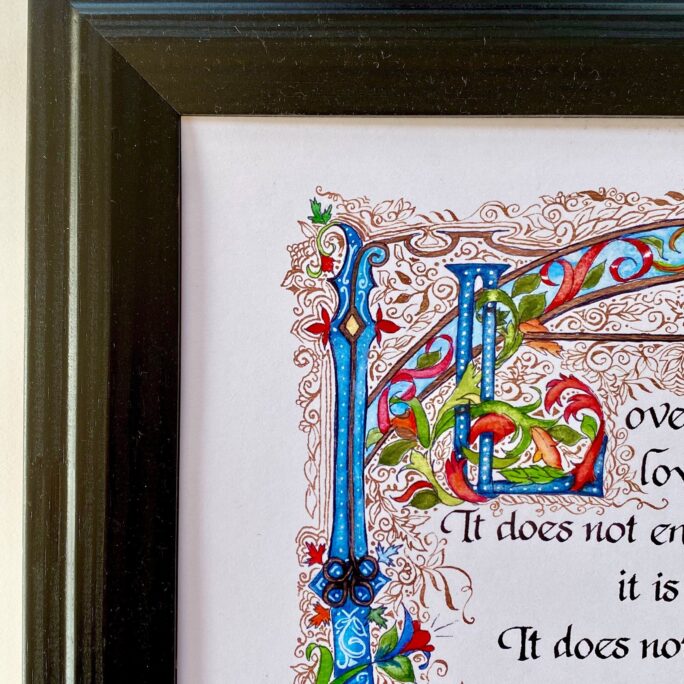 Love
lov
It does not en
it is
It does no